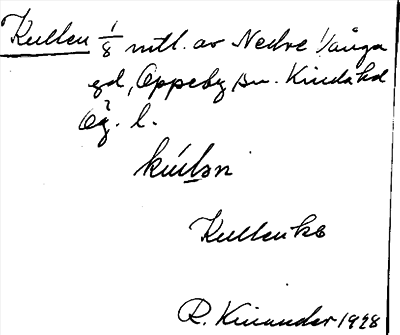 Kullen 1/8 mtl. av Nedre Vånga
gd, Oppeby sn. Kinda hd
Ög. l.
Kullenks
R. Kinander 1928